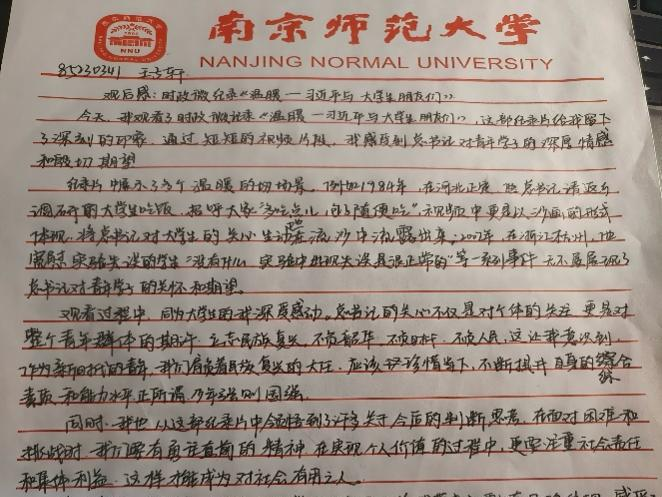 南京师范大学
NNU
NANJING NORMAL UNIVERSITY
85230341 王子轩
观后感:时政微纪录《温暖一习近平与大学生朋友们》
今天,我观看了时政微记录《温暖一习近平与大学生朋友们》,这部纪录片给我留下
了深刻的印象,通过短短的视频片段,我感受到总书记对青年学子的深厚情感
和殷切期望
纪录片中展示了多个温暖的场景。例如1984年,在河北正定,总书记请返乡
调研的大学生吃饭,招呼大家"多吃点儿,随便吃",视频中更是以沙画的形式
体现,将总书记对大学生的关心生动地在流沙中流露出来;2007年,在浙江杭州,他
实验失误的学生"没有什么,实验中出现失误是很正常的"等一系列事件,无不展现了
总书记对青年学子的关怀和期望。
观看过程中,同为大学生的我深受感动。总书记的关心不仅是对个体的关注,更是对
整个青年群体的期许。立志民族复兴,不负韶华,不负时代,不负人民,这让我意识到,
作为新时代的青年,我们肩负着民族复兴的大任,应该珍惜当下,不断提升自身的综合
素质和能力水平正所谓少年强则国强。
同时,我也从这部纪录片中领悟到了许多关于今后的判断思考,在面对困难和
挑战时,我们要有勇往直前的精神,在实现个人价值的过程中,更要注重社会责任
和集体利益,这样才能成为对社会有用之人。